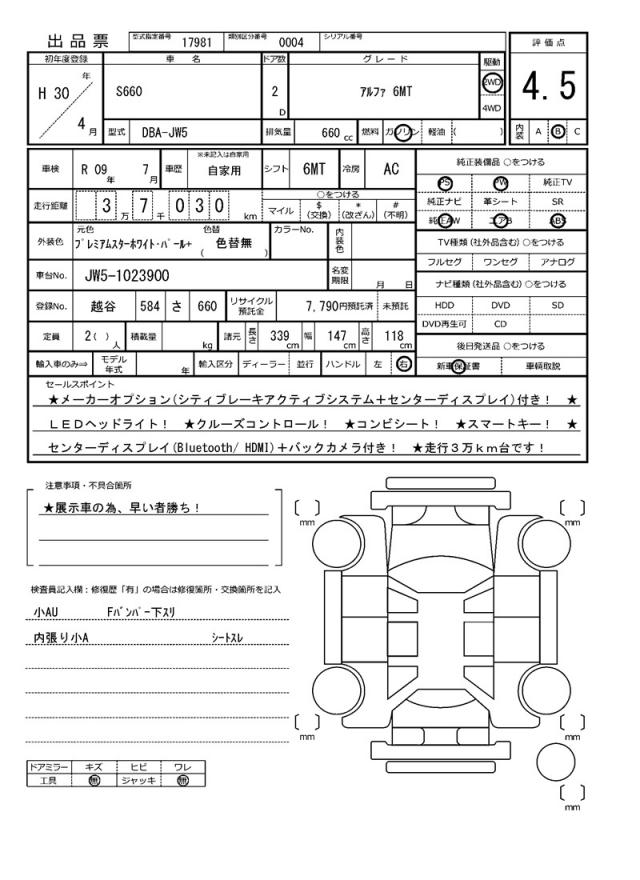 出品票
型式指定番号 17981 類別区分番号 0004 シリアル番号
評価点
4.5
内装 A B C
初年度登録 車名 ドア数 グレード 駆動
H 30 年 4 月
S660 2 D アルファ 6MT 2WD 4WD
型式 DBA-JW5 排気量 660 cc 燃料 ガソリン 軽油 ( )
車検 R 09 年 7 月 車歴 ※未記入は自家用 自家用 シフト 6MT 冷房 AC
走行距離 3 万 7 千 0 3 0 km
○をつける
マイル $ (交換) * (改ざん) # (不明)
外装色 元色 プレミアムスターホワイト・パール+ 色替 ( 色替無 ) カラーNo. 内装色
車台No. JW5-1023900 名変期限 月 日
登録No. 越谷 584 さ 660 リサイクル預託金 7,790円預託済 未預託
定員 2( ) 人 積載量 kg 諸元 長さ 339 cm 幅 147 cm 高さ 118 cm
輸入車のみ⇒ モデル年式 年 輸入区分 ディーラー 並行 ハンドル 左 右
純正装備品 ○をつける
PS PW 純正TV
純正ナビ 革シート SR
純正AW エアB ABS
TV種類 (社外品含む) ○をつける
フルセグ ワンセグ アナログ
ナビ種類 (社外品含む) ○をつける
HDD DVD SD
DVD再生可 CD
後日発送品 ○をつける
新車保証書 車輌取説
セールスポイント
★メーカーオプション(シティブレーキアクティブシステム+センターディスプレイ)付き! ★
LEDヘッドライト! ★クルーズコントロール! ★コンビシート! ★スマートキー! ★
センターディスプレイ(Bluetooth/ HDMI)+バックカメラ付き! ★走行3万km台です!
注意事項・不具合箇所
★展示車の為、早い者勝ち!
検査員記入欄:修復歴「有」の場合は修復箇所・交換箇所を記入
小AU Fバンパー下スリ
内張り小A シートスレ
ドアミラー キズ ヒビ ワレ
工具 無 ジャッキ 無
mm
mm
mm
mm
mm